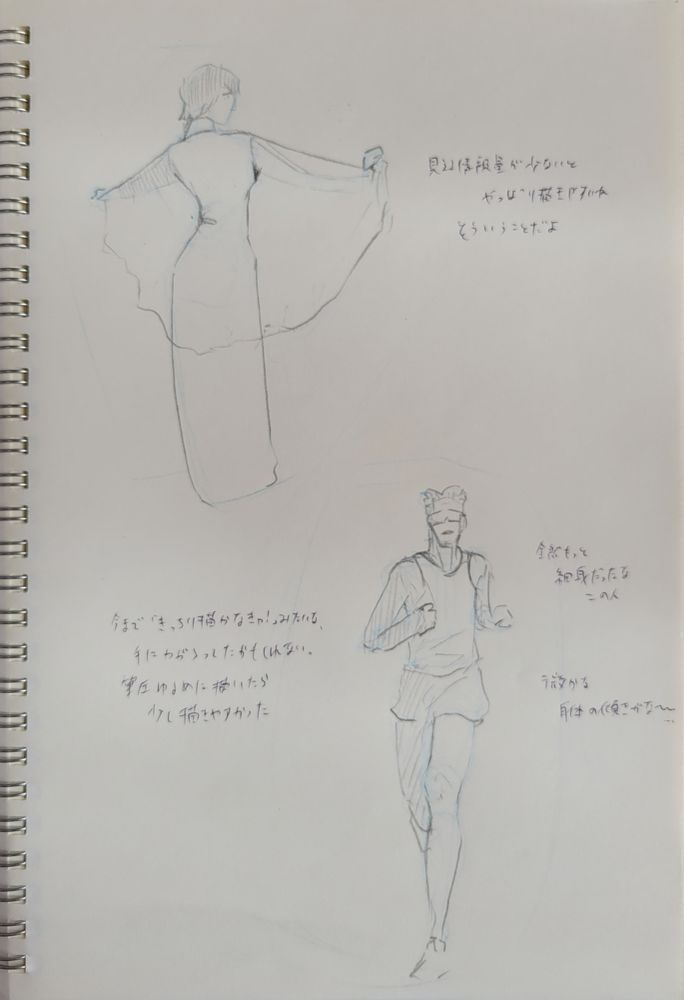 見込情報量が少ないと
やっぱり描きやすいね
そういうことだよ
全然もっと
細身だったな
この人
今まで「きっちり描かなきゃ!」みたいな、
手にわざらっしたかもしれない。
筆圧ゆるめに描いたら
少し描きやすかった
微かな
身体の傾きがな〜